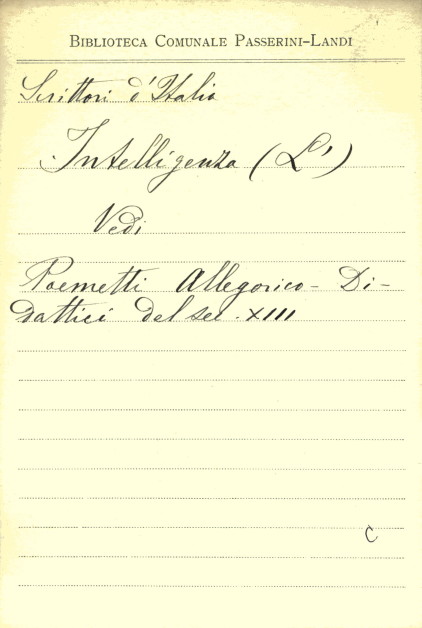 BIBLIOTECA COMUNALE PASSERINI-LANDI
Scrittori d'Italia
Intelligenza (L')
Vedi
Poemetti Allegorico-Di-
dattici del sec. XIII
C